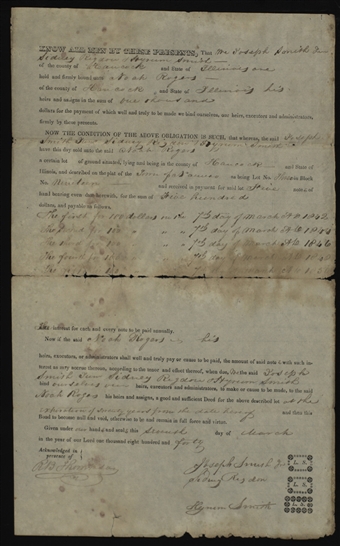 KNOW ALL MEN BY THESE PRESENTS, That We Joseph Smith Jun
Sidney Rigdon & Hyrum Smith
of the county of Hancock and State of Illinois are
held and firmly bound unto Noah Rogers
of the county of Hancock & State of Illinois his
heirs and assigns in the sum of One thousand
dollars for the payment of which well and truly to be made we bind ourselves, our heirs, executors and administrators,
firmly by these presents.
NOW THE CONDITION OF THE ABOVE OBLIGATION IS SUCH, that whereas, the said Joseph
Smith Jun Sidney Rigdon & Hyrum Smith
have this day sold unto the said Noah Rogers
a certain lot of ground situated, lying and being in the county of Hancock and State of
Illinois, and described on the plat of the Town of as being Lot No. Block
No. and received in payment for said lot
bearing even date herewith, for the sum of Five hundred
dollars, and payable as follows.
The first for 100 dollars on the 7th day of March 1842
7th day of March 1844
7th day of March 1846
day of March
The interest for each and every note to be paid annually.
Now if the said Noah Rogers his
heirs, executors, or administrators shall well and truly pay or cause to be paid, the amount of said note with such in-
terest as may accrue thereon, according to the tenor and effect thereof, when due, the said Joseph
Smith Jun Sidney Rigdon & Hyrum Smith
bind ourselves our heirs, executors and administrators, to make or cause to be made, to the said
Noah Rogers his heirs and assigns, a good and sufficient Deed for the above described lot at the
expiration of years from the date hereof and then this
Bond to become null and void, otherwise to be and remain in full force and virtue.
Given under our hand, and seal, this day of March
in the year of our Lord one thousand eight hundred and forty
Acknowledged in
presence of
Joseph Smith Jr L. S.
Sidney Rigdon L. S.
Hyrum Smith L. S.